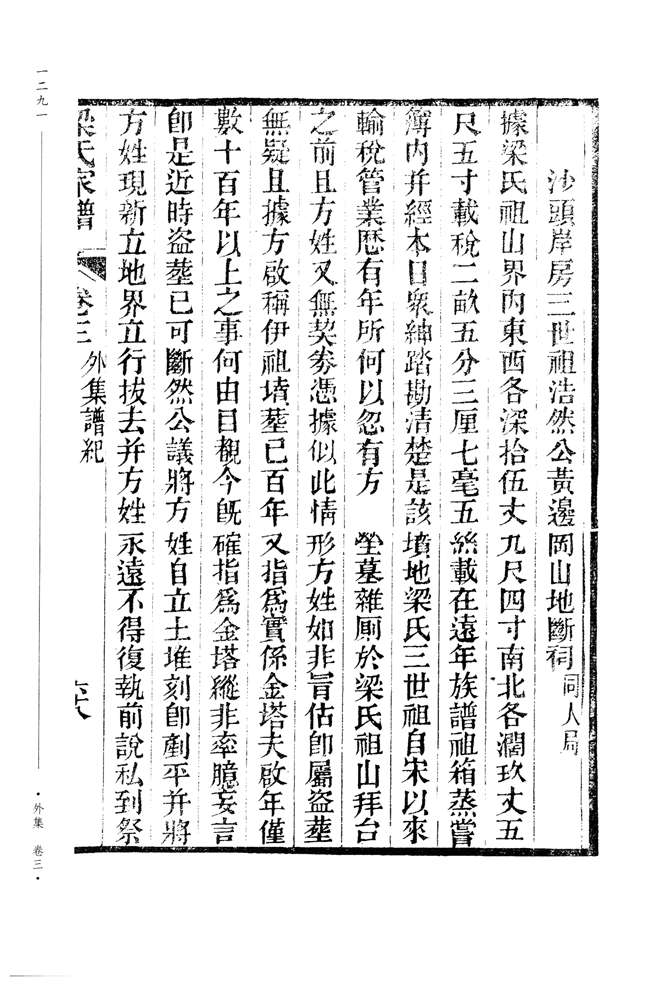 沙頭岸房三世祖浩然公黃邊岡山地斷祠同人局
據梁氏祖山界內東西各深拾伍丈九尺四寸南北各濶玖丈五
尺五寸載稅二畝五分三厘七毫五絲載在遠年族譜祖箱蒸嘗
簿內并經本日衆紳踏勘清楚是該墳地梁氏三世祖自宋以來
輸稅管業歷有年所何以忽有方 塋墓雜厠於梁氏祖山拜台
之前且方姓又無契劵憑據似此情形方姓如非冐估卽屬盗塟
無疑且據方啟稱伊祖墳塟已百年又指爲實係金塔夫啟年僅
數十百年以上之事何由目覩今旣確指爲金塔縱非率臆妄言
卽是近時盗塟已可斷然公議將方姓自立土堆刻卽剷平并將
方姓現新立地界立行拔去并方姓永遠不得復執前說私到祭
梁氏家譜 卷三 外集譜紀 六八
一二九一
·外集 卷三·